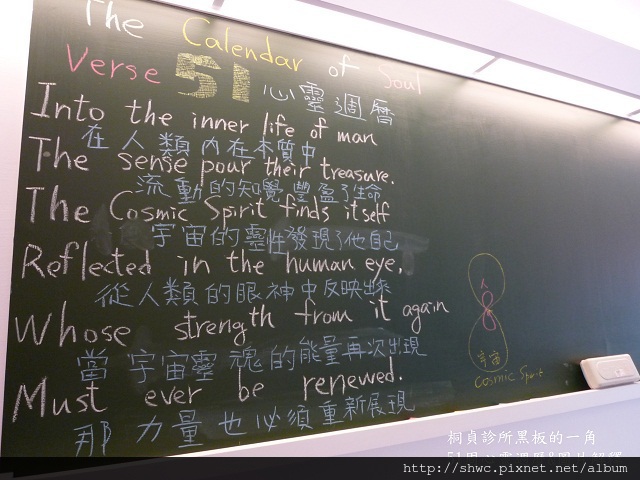 The Calendar of Soul
Verse 51 心靈週曆
Into the inner life of man
在人類內在本質中
The sense pour their treasure.
流動的知覺豐盈了生命
The Cosmic Spirit finds itself
宇宙的靈性發現了他自己
Reflected in the human eye,
從人類的眼神中反映出來
Whose strength from it again
當宇宙靈魂的能量再次出現
Must ever be renewed.
那力量也必須重新展現
人
宇宙
Cosmic Spirit
桐貞診所黑板的一角
http://shwc.pixnet.net/album